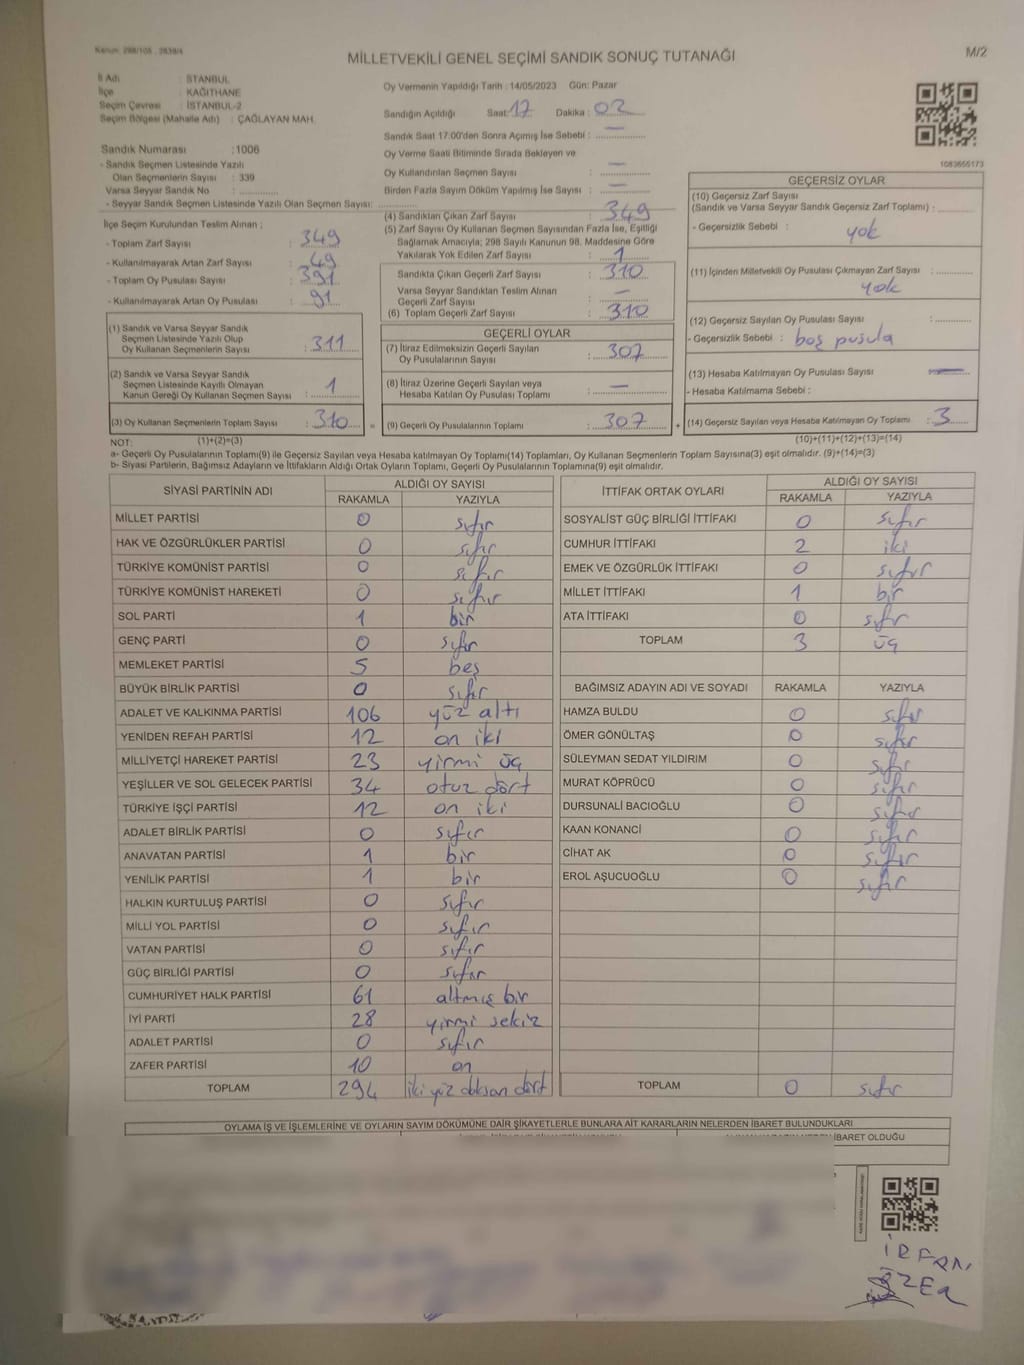 Kanun: 298/105 , 2839/4
MİLLETVEKİLİ GENEL SEÇİMİ SANDIK SONUÇ TUTANAĞI
M/2
İl Adı : İSTANBUL
İlçe : KAĞITHANE
Seçim Çevresi : İSTANBUL-2
Seçim Bölgesi (Mahalle Adı) : ÇAĞLAYAN MAH.
Sandık Numarası :1006
- Sandık Seçmen Listesinde Yazılı
Olan Seçmenlerin Sayısı : 339
Varsa Seyyar Sandık No :
- Seyyar Sandık Seçmen Listesinde Yazılı Olan Seçmen Sayısı:
Oy Vermenin Yapıldığı Tarih : 14/05/2023 Gün: Pazar
Sandığın Açıldığı Saat: 17 Dakika : 02
Sandık Saat 17.00'den Sonra Açımış İse Sebebi : —
Oy Verme Saati Bitiminde Sırada Bekleyen ve
Oy Kullandırılan Seçmen Sayısı : —
Birden Fazla Sayım Döküm Yapılmış İse Sayısı : —
1083655173
İlçe Seçim Kurulundan Teslim Alınan ;
- Toplam Zarf Sayısı : 349
- Kullanılmayarak Artan Zarf Sayısı : 49
- Toplam Oy Pusulası Sayısı : 391
- Kullanılmayarak Artan Oy Pusulası : 91
(1) Sandık ve Varsa Seyyar Sandık
Seçmen Listesinde Yazılı Olup
Oy Kullanan Seçmenlerin Sayısı : 311
(2) Sandık ve Varsa Seyyar Sandık
Seçmen Listesinde Kayıtlı Olmayan
Kanun Gereği Oy Kullanan Seçmen Sayısı : 1
(3) Oy Kullanan Seçmenlerin Toplam Sayısı : 310 =
(4) Sandıktan Çıkan Zarf Sayısı : 349
(5) Zarf Sayısı Oy Kullanan Seçmen Sayısından Fazla İse, Eşitliği
Sağlamak Amacıyla; 298 Sayılı Kanunun 98. Maddesine Göre
Yakılarak Yok Edilen Zarf Sayısı : 1
Sandıkta Çıkan Geçerli Zarf Sayısı : 310
Varsa Seyyar Sandıktan Teslim Alınan
Geçerli Zarf Sayısı : —
(6) Toplam Geçerli Zarf Sayısı : 310
GEÇERLİ OYLAR
(7) İtiraz Edilmeksizin Geçerli Sayılan
Oy Pusulalarının Sayısı : 307
(8) İtiraz Üzerine Geçerli Sayılan veya
Hesaba Katılan Oy Pusulası Toplamı : —
(9) Geçerli Oy Pusulalarının Toplamı : 307 +
GEÇERSİZ OYLAR
(10) Geçersiz Zarf Sayısı
(Sandık ve Varsa Seyyar Sandık Geçersiz Zarf Toplamı) :
- Geçersizlik Sebebi : yok
(11) İçinden Milletvekili Oy Pusulası Çıkmayan Zarf Sayısı :
yok
(12) Geçersiz Sayılan Oy Pusulası Sayısı :
- Geçersizlik Sebebi : boş pusula
(13) Hesaba Katılmayan Oy Pusulası Sayısı —
- Hesaba Katılmama Sebebi :
(14) Geçersiz Sayılan veya Hesaba Katılmayan Oy Toplamı : 3
NOT: (1)+(2)=(3) (10)+(11)+(12)+(13)=(14)
a- Geçerli Oy Pusulalarının Toplamı(9) ile Geçersiz Sayılan veya Hesaba katılmayan Oy Toplamı(14) Toplamları, Oy Kullanan Seçmenlerin Toplam Sayısına(3) eşit olmalıdır. (9)+(14)=(3)
b- Siyasi Partilerin, Bağımsız Adayların ve İttifakların Aldığı Ortak Oyların Toplamı, Geçerli Oy Pusulalarının Toplamına(9) eşit olmalıdır.
SİYASİ PARTİNİN ADI ALDIĞI OY SAYISI
RAKAMLA YAZIYLA
MİLLET PARTİSİ 0 sıfır
HAK VE ÖZGÜRLÜKLER PARTİSİ 0 sıfır
TÜRKİYE KOMÜNİST PARTİSİ 0 sıfır
TÜRKİYE KOMÜNİST HAREKETİ 0 sıfır
SOL PARTİ 1 bir
GENÇ PARTİ 0 sıfır
MEMLEKET PARTİSİ 5 beş
BÜYÜK BİRLİK PARTİSİ 0 sıfır
ADALET VE KALKINMA PARTİSİ 106 yüz altı
YENİDEN REFAH PARTİSİ 12 on iki
MİLLİYETÇİ HAREKET PARTİSİ 23 yirmi üç
YEŞİLLER VE SOL GELECEK PARTİSİ 34 otuz dört
TÜRKİYE İŞÇİ PARTİSİ 12 on iki
ADALET BİRLİK PARTİSİ 0 sıfır
ANAVATAN PARTİSİ 1 bir
YENİLİK PARTİSİ 1 bir
HALKIN KURTULUŞ PARTİSİ 0 sıfır
MİLLİ YOL PARTİSİ 0 sıfır
VATAN PARTİSİ 0 sıfır
GÜÇ BİRLİĞİ PARTİSİ 0 sıfır
CUMHURİYET HALK PARTİSİ 61 altmış bir
İYİ PARTİ 28 yirmi sekiz
ADALET PARTİSİ 0 sıfır
ZAFER PARTİSİ 10 on
TOPLAM 294 iki yüz doksan dört
İTTİFAK ORTAK OYLARI ALDIĞI OY SAYISI
RAKAMLA YAZIYLA
SOSYALİST GÜÇ BİRLİĞİ İTTİFAKI 0 sıfır
CUMHUR İTTİFAKI 2 iki
EMEK VE ÖZGÜRLÜK İTTİFAKI 0 sıfır
MİLLET İTTİFAKI 1 bir
ATA İTTİFAKI 0 sıfır
TOPLAM 3 üç
BAĞIMSIZ ADAYIN ADI VE SOYADI RAKAMLA YAZIYLA
HAMZA BULDU 0 sıfır
ÖMER GÖNÜLTAŞ 0 sıfır
SÜLEYMAN SEDAT YILDIRIM 0 sıfır
MURAT KÖPRÜCÜ 0 sıfır
DURSUNALİ BACIOĞLU 0 sıfır
KAAN KONANCİ 0 sıfır
CİHAT AK 0 sıfır
EROL AŞUCUOĞLU 0 sıfır
TOPLAM 0 sıfır
OYLAMA İŞ VE İŞLEMLERİNE VE OYLARIN SAYIM DÖKÜMÜNE DAİR ŞİKAYETLERLE BUNLARA AİT KARARLARIN NELERDEN İBARET BULUNDUKLARI
İBARET OLDUĞU
İRFAN
ÖZER